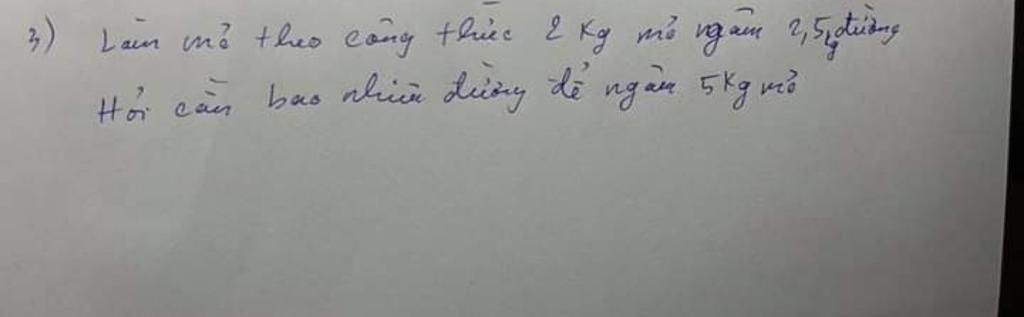 3) Làm mơ theo công thức 2 Kg mơ ngâm 2,5kg đường
Hỏi cần bao nhiêu đường để ngâm 5Kg mơ